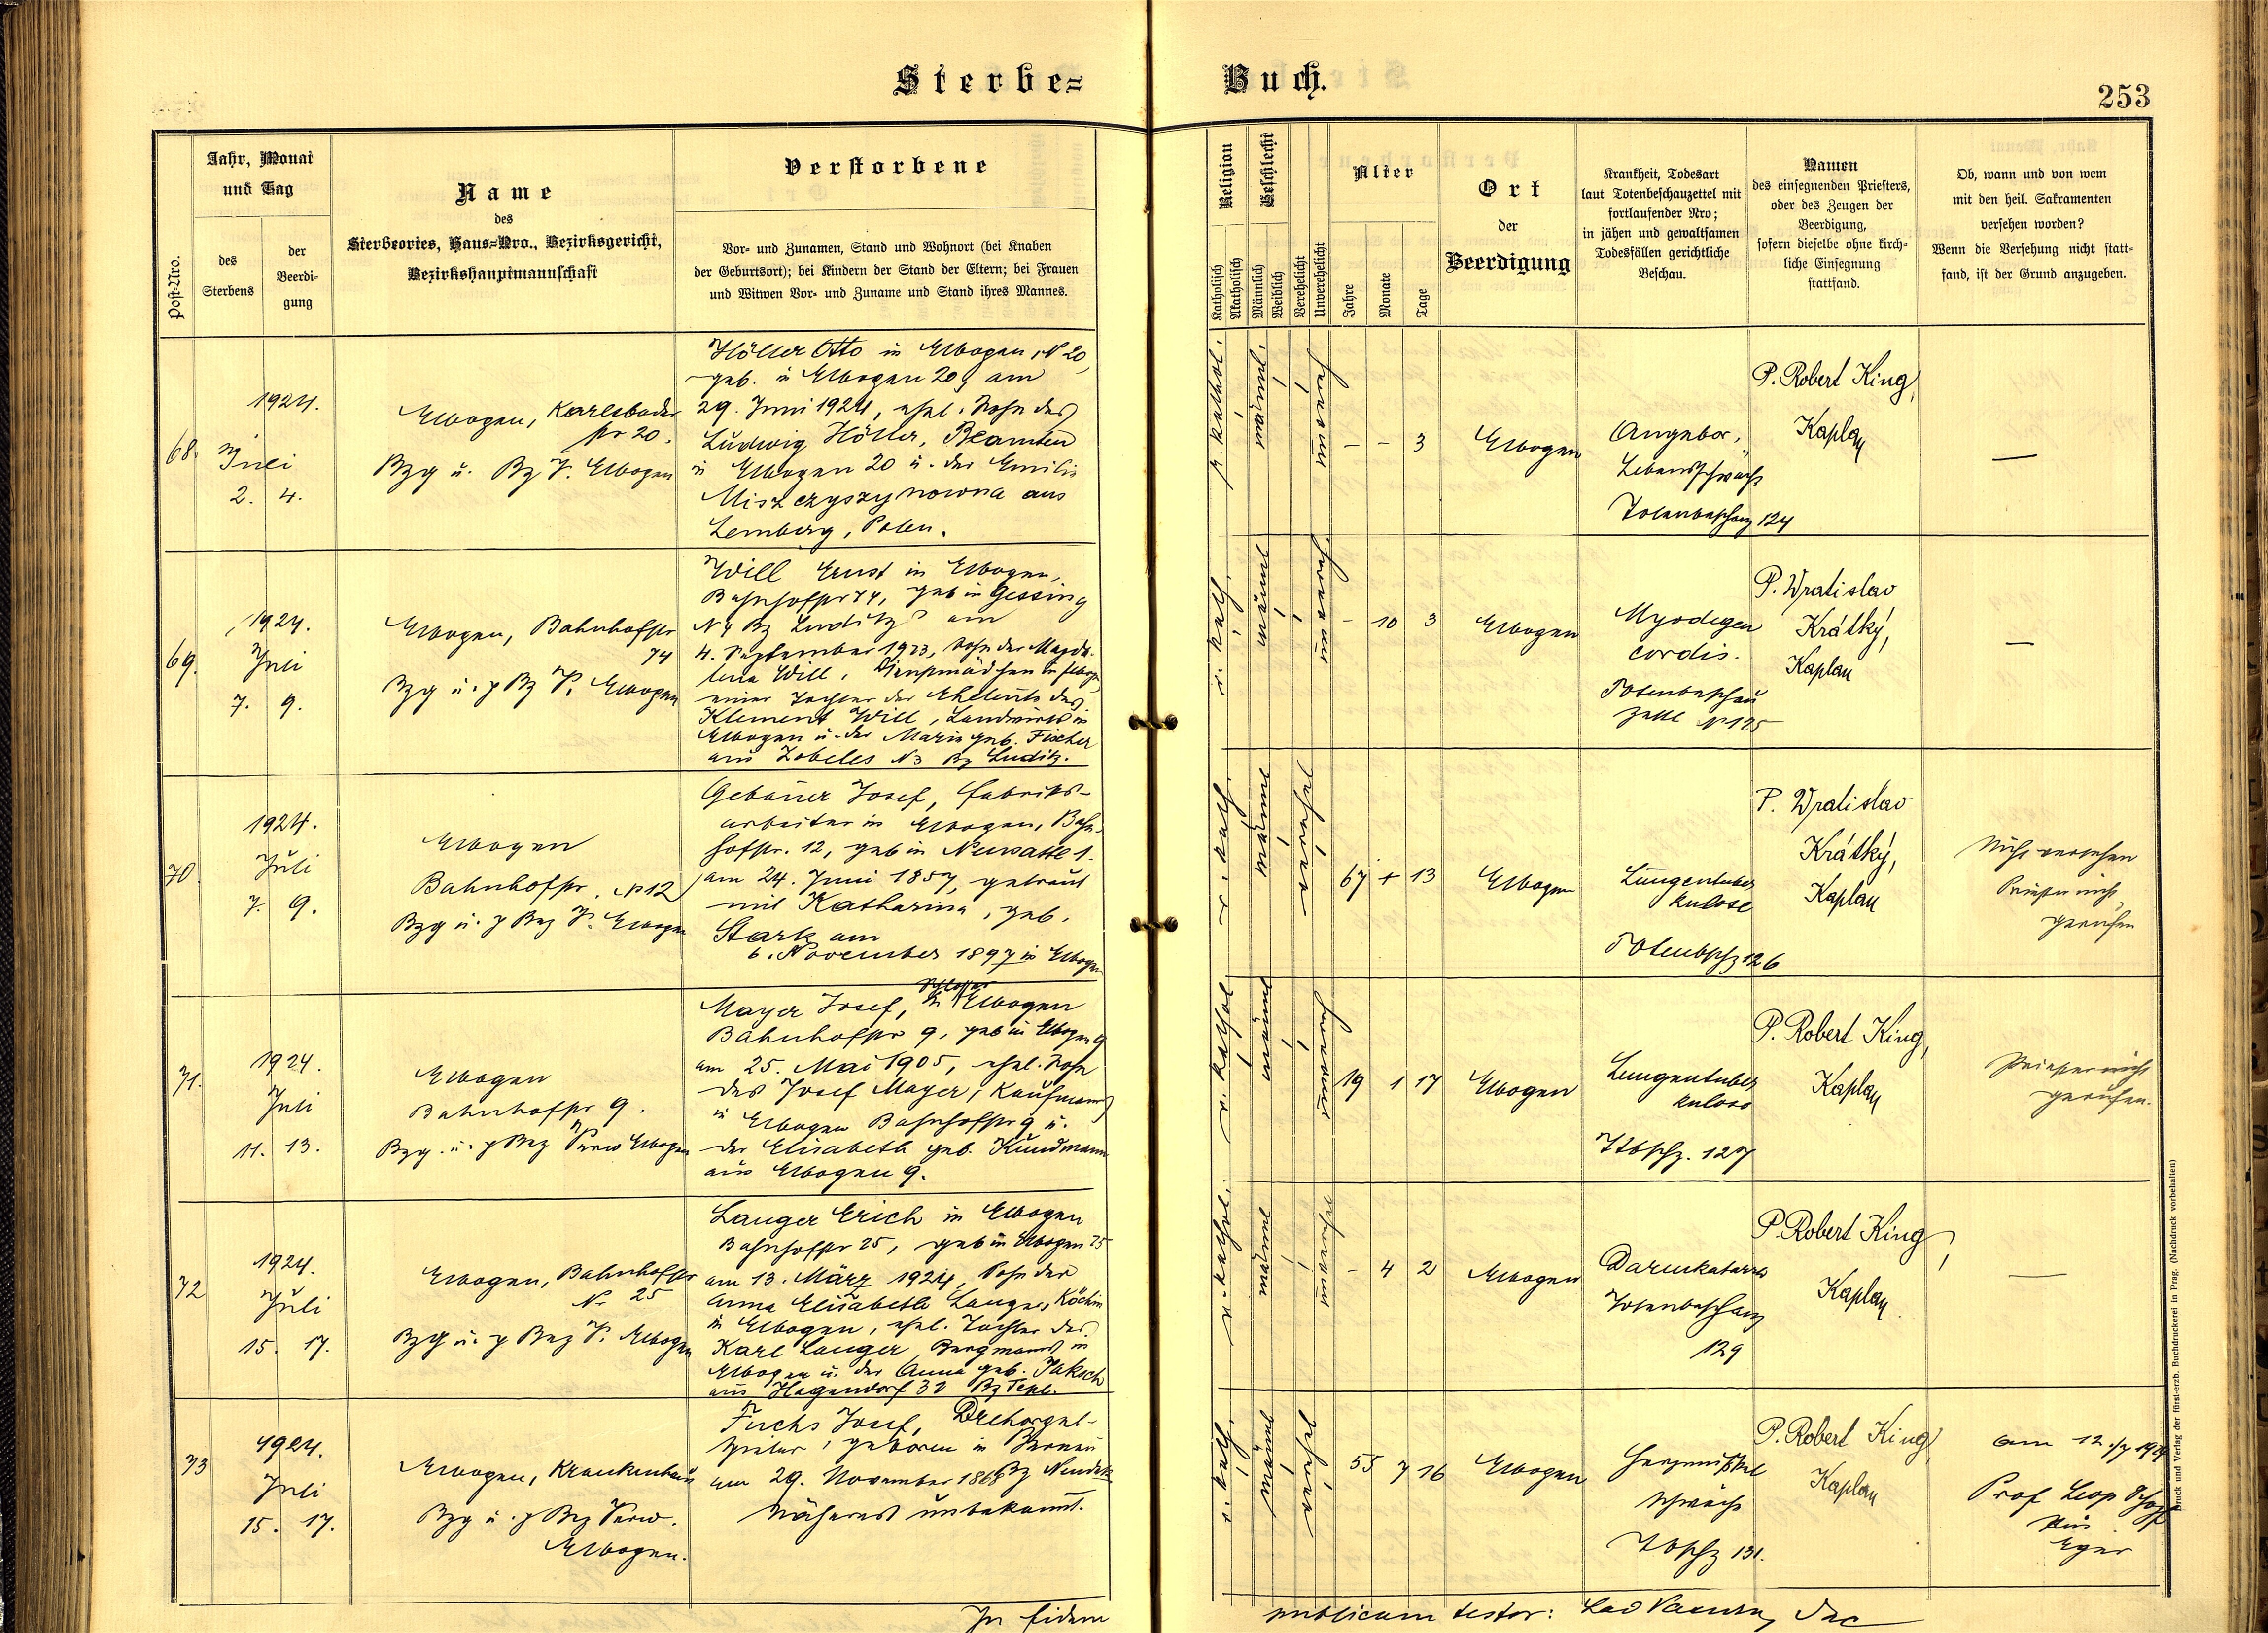 Sterbe=
Buch.
253
Post-Nro.
Jahr, Monat
und Tag
des
Sterbens
der
Beerdi-
gung
Name
des
Sterbeortes, Haus=Nro., Bezirksgericht,
Bezirkshauptmannschaft
Verstorbene
Vor- und Zunamen, Stand und Wohnort (bei Knaben
der Geburtsort); bei Kindern der Stand der Eltern; bei Frauen
und Witwen Vor- und Zuname und Stand ihres Mannes.
Religion
Katholisch
Akatholisch
Geschlecht
Männlich
Weiblich
Verehelicht
Unverehelicht
Alter
Jahre
Monate
Tage
Ort
der
Beerdigung
Krankheit, Todesart
laut Totenbeschauzettel mit
fortlaufender Nro;
in jähen und gewaltsamen
Todesfällen gerichtliche
Beschau.
Namen
des einsegnenden Priesters,
oder des Zeugen der
Beerdigung,
sofern dieselbe ohne kirch-
liche Einsegnung
stattfand.
Ob, wann und von wem
mit den heil. Sakramenten
versehen worden?
Wenn die Versehung nicht statt-
fand, ist der Grund anzugeben.
68.
1924.
Juli
2. 4.
Elbogen, Karlsbader
str 20.
Bzg u. Bz V. Elbogen
Höller Otto in Elbogen, N 20,
geb. in Elbogen 20, am
29. Juni 1924, ehel. Sohn des
Ludwig Höller, Beamten
in Elbogen 20 u. der Emilie
Miszczyszynowna aus
Lemberg, Polen.
r. kathol.
männl.
- - 3
Elbogen
Angebor.
Lebensschwäche
Totenbeschauz 124
P. Robert King,
Kaplan
—
69.
1924.
Juli
7. 9.
Elbogen, Bahnhofstr
74
Bzg u. p Bz V. Elbogen
Will Ernst in Elbogen,
Bahnhofstr 74, geb in Gessing
N 4 Bz Luditz am
4. September 1923, Sohn der Magda-
lena Will, Dienstmädchen in Elbogen,
einer Tochter der Eheleute des
Klement Will, Landwirts in
Elbogen u. der Marie geb. Fischer
aus Zobeles N3 Bz Luditz.
r. kath.
männl
- 10 3
Elbogen
Myodegen
cordis.
Totenbeschau
zettl N 125
P. Wratislav
Krátký,
Kaplan
—
70
1924.
Juli
7. 9.
Elbogen
Bahnhofstr. N 12
Bzg u. p Bez V. Elbogen
Gebauer Josef, Fabriks-
arbeiter in Elbogen, Bahn-
hofstr. 12, geb in Neusattl 1.
am 24. Juni 1857, getraut
mit Katharina, geb.
Stark am
6. November 1897 in Elbogen
r. kath.
männl
verehel
67 + 13
Elbogen
Lungentuber
kulose
Totenbschz 126
P. Wratislav
Krátký,
Kaplan
Nicht versehen
Priester nicht
gerufen
71.
1924.
Juli
11. 13.
Elbogen
Bahnhofstr 9.
Bzg. u. p Bez Verw Elbogen
Mayer Josef, in Elbogen
Bahnhofstr 9, geb in Elbogen 9
am 25. Mai 1905, ehel. Sohn
des Josef Mayer, Kaufmann
in Elbogen Bahnhofstr 9 u.
der Elisabeth geb. Kundmann
aus Elbogen 9.
r. kathol
männl
19 1 17
Elbogen
Lungentuber
kulose
Ttbschz. 127
P. Robert King,
Kaplan
Priester nicht
gerufen.
72
1924.
Juli
15. 17.
Elbogen, Bahnhofstr
N. 25
Bzg u. p Bez V. Elbogen
Langer Erich in Elbogen
Bahnhofstr 25, geb in Elbogen 25
am 13. März 1924, Sohn der
Anna Elisabeth Langer, Köchin
in Elbogen, ehel. Tochter des
Karl Langer, Bergmanns in
Elbogen u. der Anna geb. Jaksch
aus Hagendorf 32 Bz Tepl.
r. kathol.
männl
- 4 2
Elbogen
Darmkatarrh
Totenbeschauz
129
P. Robert King,
Kaplan
—
73
1924.
Juli
15. 17.
Elbogen, Krankenhaus
Bzg u. p Bez Verw.
Elbogen.
Fuchs Josef, Drehorgel-
spieler, geboren in Bernau
am 29. November 1868 Bz Neudek
Näheres unbekannt.
r. kath.
männl
verehel
55 7 16
Elbogen
Herzmuskel
schwäche
Tbschz 131.
P. Robert King,
Kaplan
am 12./7 1924
Prof Leop
aus
Eger
In fidem
publicam testor:
Druck und Verlag der fürst-erzb. Buchdruckerei in Prag. (Nachdruck vorbehalten)